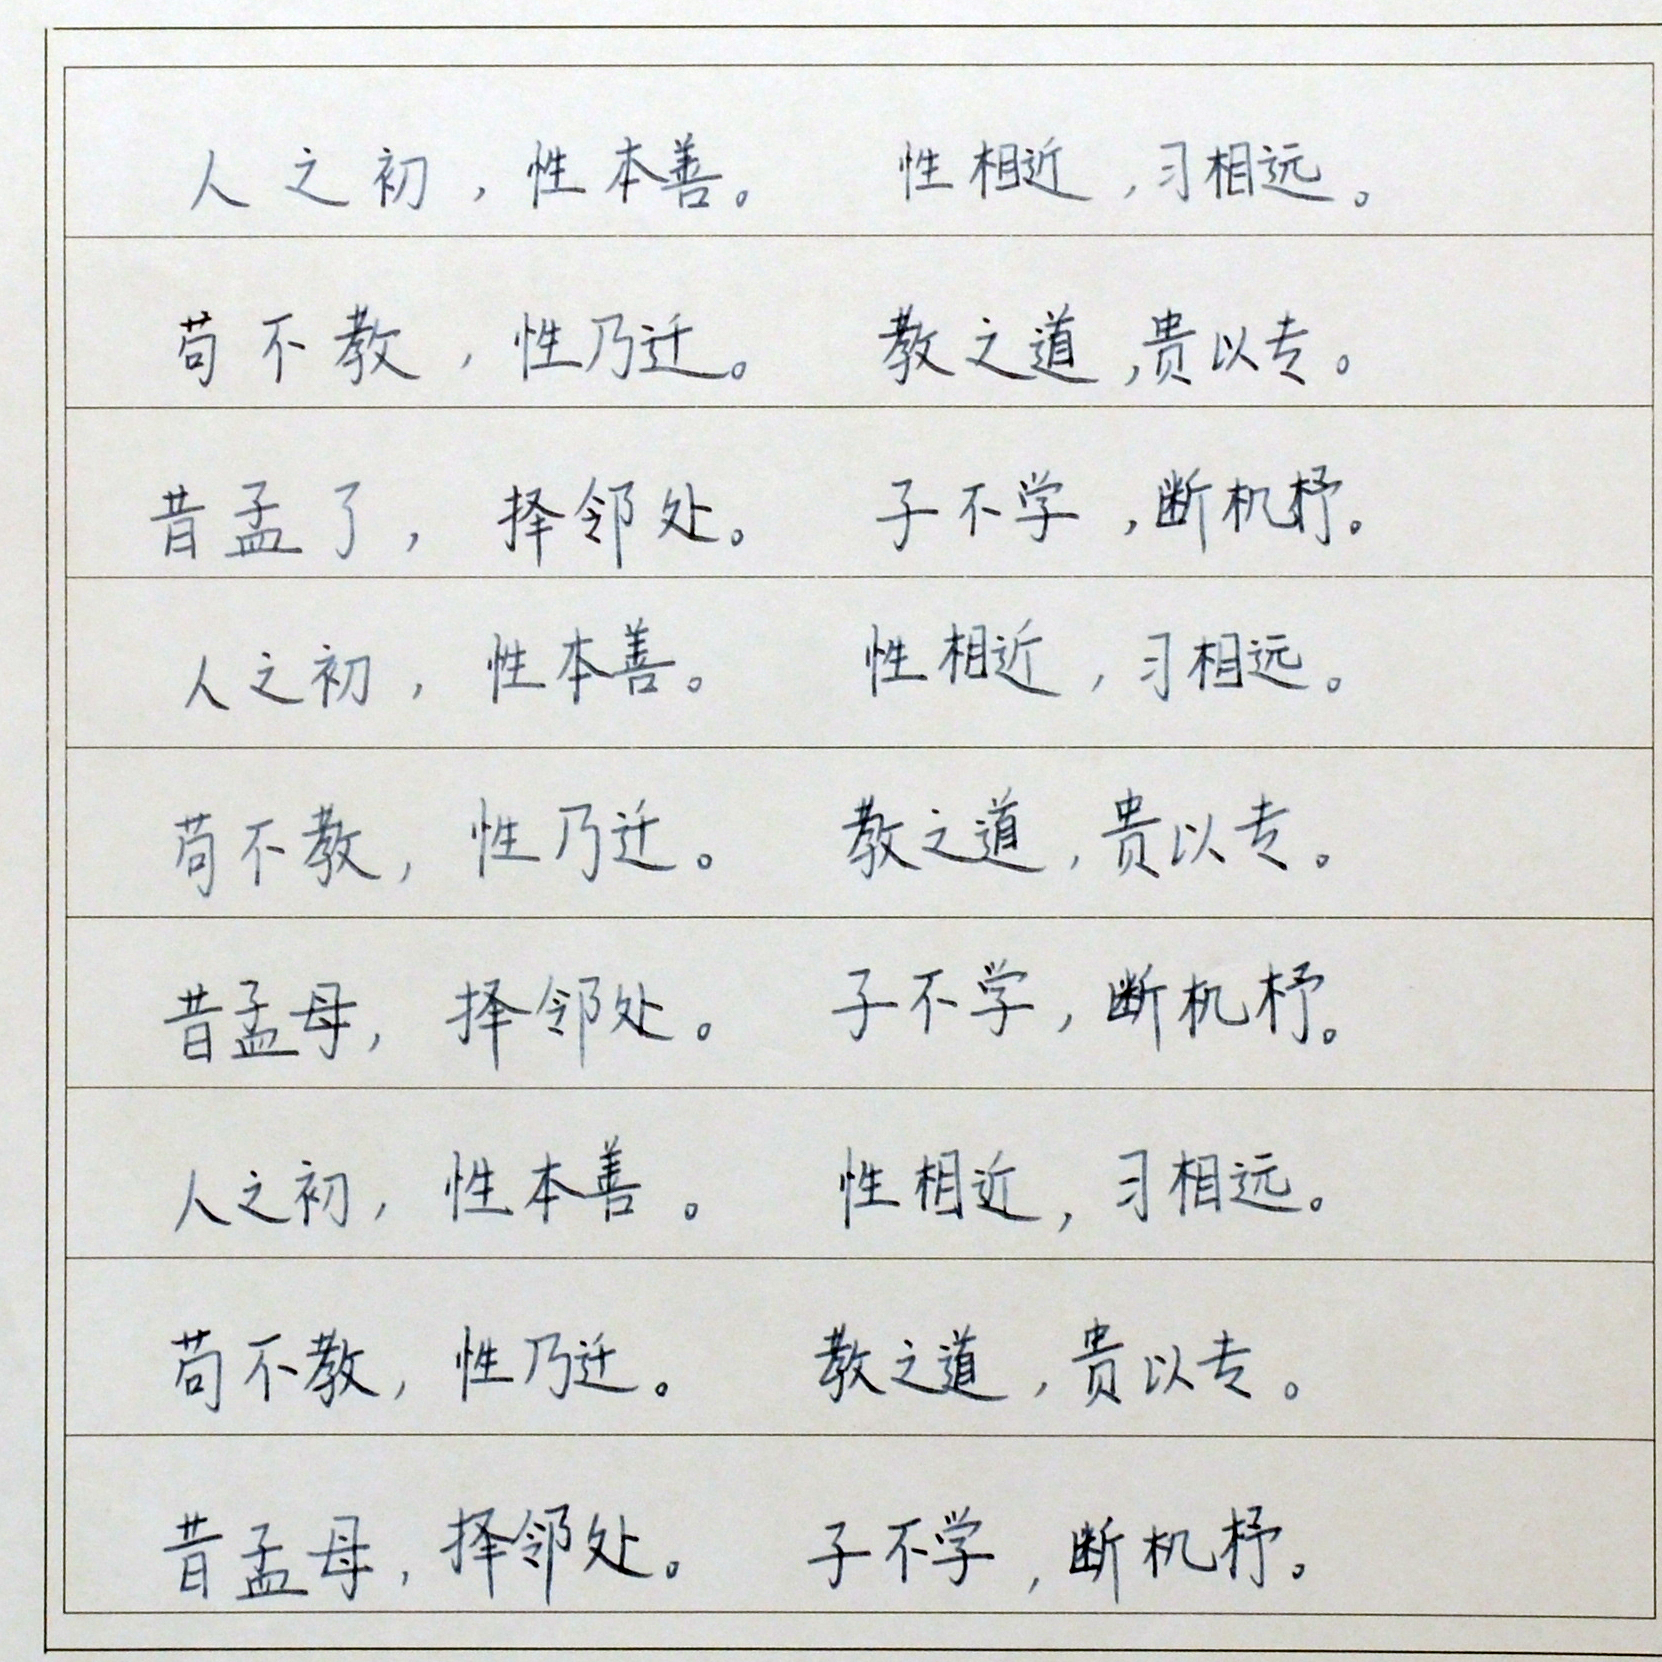 人之初，性本善。 性相近，习相远。
苟不教，性乃迁。 教之道，贵以专。
昔孟了，择邻处。 子不学，断机杼。
人之初，性本善。 性相近，习相远。
苟不教，性乃迁。 教之道，贵以专。
昔孟母，择邻处。 子不学，断机杼。
人之初，性本善。 性相近，习相远。
苟不教，性乃迁。 教之道，贵以专。
昔孟母，择邻处。 子不学，断机杼。